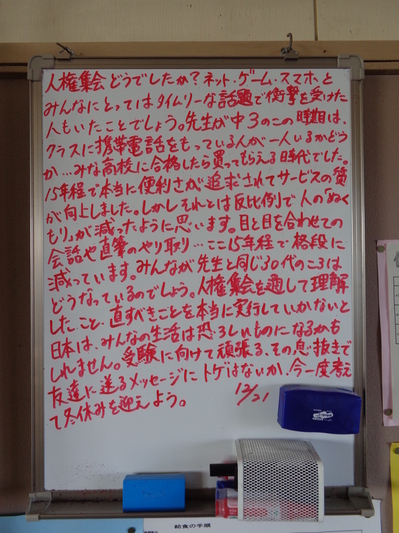 人権集会どうでしたか?ネット・ゲーム・スマホと
みんなにとってはタイムリーな話題で衝撃を受けた
人もいたことでしょう。先生が中3のこの時期は、
クラスに携帯電話をもっている人が一人いるかどう
か…みな高校に合格したら買ってもらえる時代でした。
15年程で本当に便利さが追求されてサービスの質
が向上しました。しかしそれとは反比例で人の「ぬく
もり」が減ったように思います。目と目を合わせての
会話や直筆のやり取り…ここ15年程で格段に
減っています。みんなが先生と同じ30代のころは
どうなっているのでしょう。人権集会を通して理解
したこと・直すべきことを本当に実行していかないと
日本は、みんなの生活は恐ろしいものになるかも
しれません。受験に向けて頑張る、その息抜きで
友達に送るメッセージにトゲはないか、今一度考え
て冬休みを迎えよう。 12/21
給食の手順